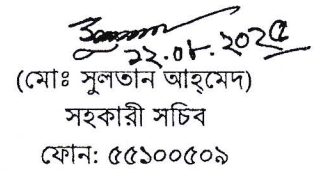 ২২.০৮.২০২৫
(মোঃ সুলতান আহ্‌মেদ)
সহকারী সচিব
ফোন: ৫৫১০০৫০৯